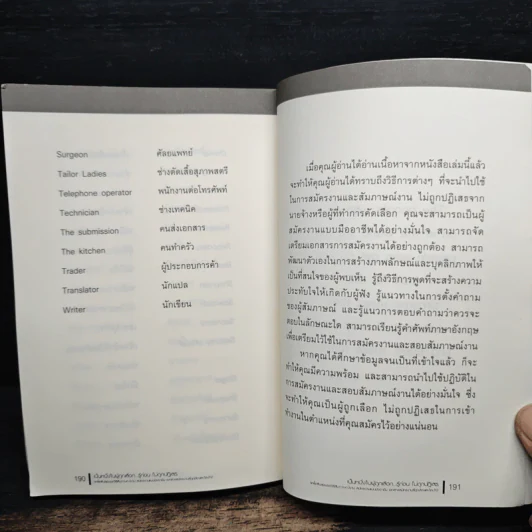 Surgeon ศัลยแพทย์
Tailor Ladies ช่างตัดเสื้อสุภาพสตรี
Telephone operator พนักงานต่อโทรศัพท์
Technician ช่างเทคนิค
The submission คนส่งเอกสาร
The kitchen คนทำครัว
Trader ผู้ประกอบการค้า
Translator นักแปล
Writer นักเขียน
190 เป็นหนึ่งในผู้ถูกเลือก รู้ก่อน ไม่ถูกปฏิเสธ
เมื่อคุณผู้อ่านได้อ่านเนื้อหาจากหนังสือเล่มนี้แล้ว
จะทำให้คุณผู้อ่านได้ทราบถึงวิธีการต่างๆ ที่จะนำไปใช้
ในการสมัครงานและสัมภาษณ์งาน ไม่ถูกปฏิเสธจาก
นายจ้างหรือผู้ที่ทำการคัดเลือก คุณจะสามารถเป็นผู้
สมัครงานแบบมืออาชีพได้อย่างมั่นใจ สามารถจัด
เตรียมเอกสารการสมัครงานได้อย่างถูกต้อง สามารถ
พัฒนาตัวเองในการสร้างภาพลักษณ์และบุคลิกภาพให้
เป็นที่สนใจของผู้พบเห็น รู้ถึงวิธีการพูดที่จะสร้างความ
ประทับใจให้เกิดกับผู้ฟัง รู้แนวทางในการตั้งคำถาม
ของผู้สัมภาษณ์ และรู้แนวการตอบคำถามว่าควรจะ
ตอบในลักษณะใด สามารถเรียนรู้คำศัพท์ภาษาอังกฤษ
เพื่อเตรียมไว้ใช้ในการสมัครงานและสอบสัมภาษณ์งาน
หากคุณได้ศึกษาข้อมูลจนเป็นที่เข้าใจแล้ว ก็จะ
ทำให้คุณมีความพร้อม และสามารถนำไปใช้ปฏิบัติใน
การสมัครงานและสอบสัมภาษณ์งานได้อย่างมั่นใจ ซึ่ง
จะทำให้คุณเป็นผู้ถูกเลือก ไม่ถูกปฏิเสธในการเข้า
ทำงานในตำแหน่งที่คุณสมัครไว้อย่างแน่นอน
เป็นหนึ่งในผู้ถูกเลือก รู้ก่อน ไม่ถูกปฏิเสธ 191